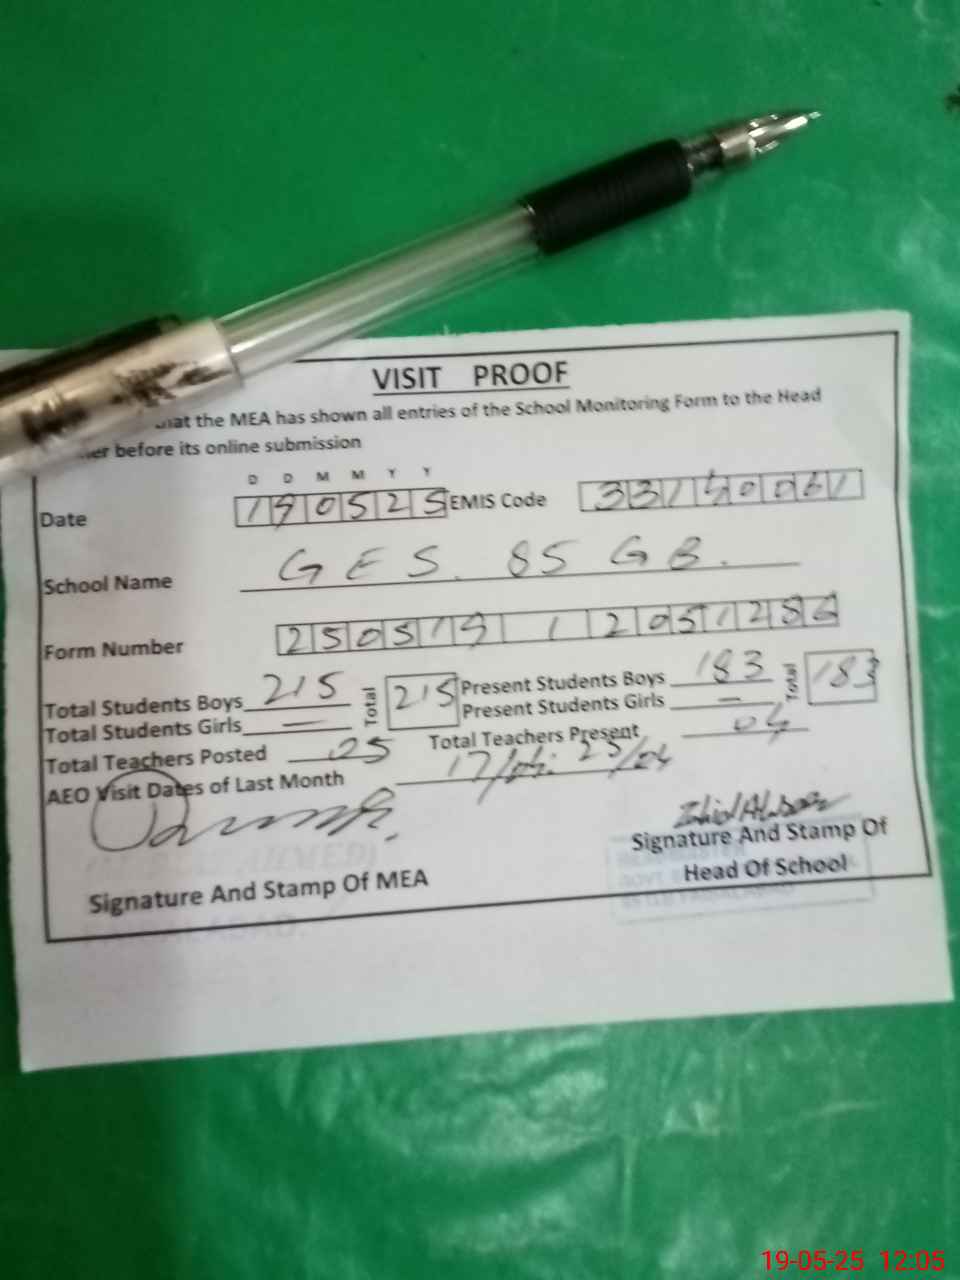 VISIT PROOF
that the MEA has shown all entries of the School Monitoring Form to the Head
before its online submission
D D M M Y Y
Date 190525 EMIS Code 33140061
School Name GES. 85 GB.
Form Number 250519 1 2051286
Total Students Boys 215 Total 215 Present Students Boys 183 Total 183
Total Students Girls — Present Students Girls —
Total Teachers Posted 05 Total Teachers Present 04
AEO Visit Dates of Last Month 17/04. 23/04
Signature And Stamp Of MEA
Signature And Stamp Of
Head Of School
19-05-25 12:05